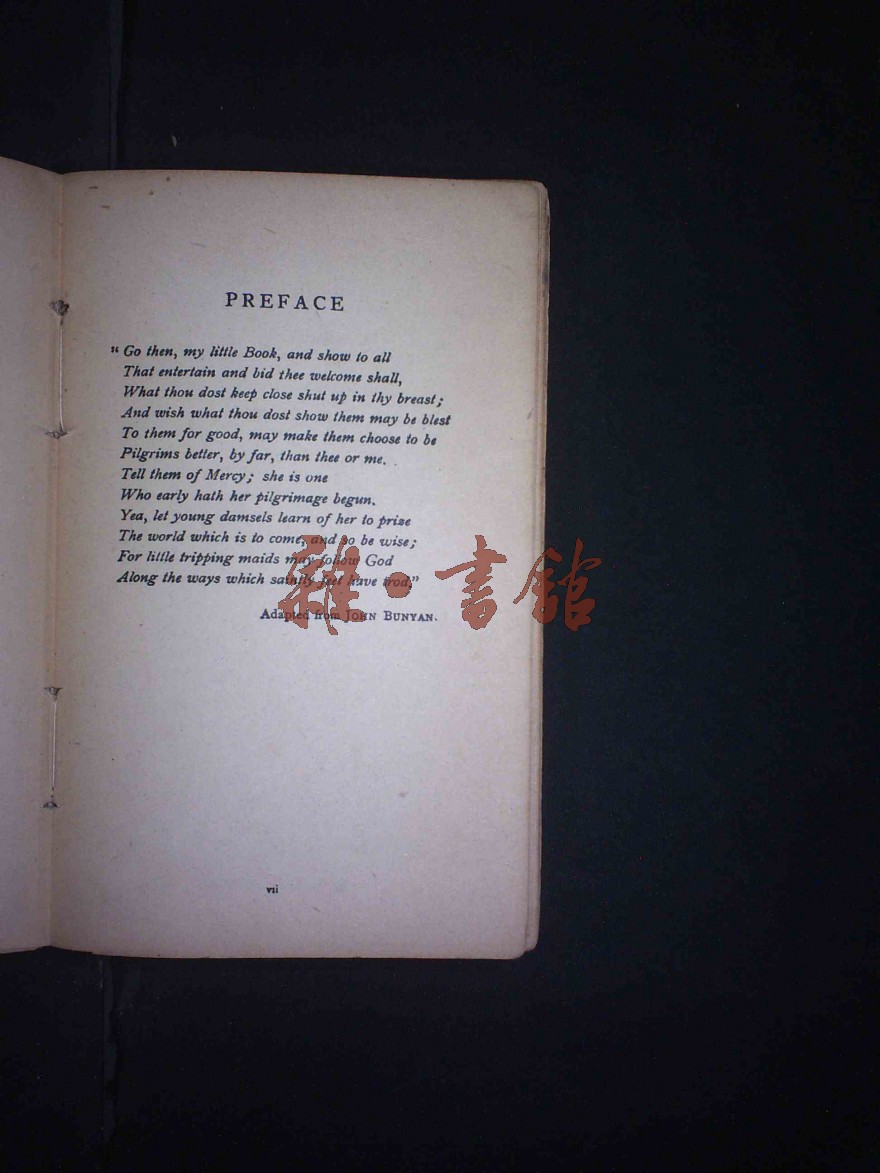 PREFACE
“ Go then, my little Book, and show to all
That entertain and bid thee welcome shall,
What thou dost keep close shut up in thy breast;
And wish what thou dost show them may be blest
To them for good, may make them choose to be
Pilgrims better, by far, than thee or me.
Tell them of Mercy; she is one
Who early hath her pilgrimage begun.
Yea, let young damsels learn of her to prize
The world which is to come, and so be wise;
For little tripping maids may follow God
Along the ways which saintly feet have trod.”
Adapted from JOHN BUNYAN.
雜·書館
vii